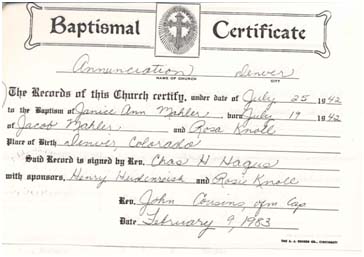 Baptismal Certificate
Annunciation Denver
NAME OF CHURCH CITY
The Records of this Church certify, under date of July 25 1942
to the Baptism of Janice Ann Mahler, born July 19 1942
of Jacob Mahler and Rosa Knoll
Place of Birth Denver, Colorado
Said Record is signed by Rev. Chas H Hagus
with sponsors, Henry Heidenreich and Rosie Knoll
Rev. John Cousins, ofm Cap
Date February 9, 1983